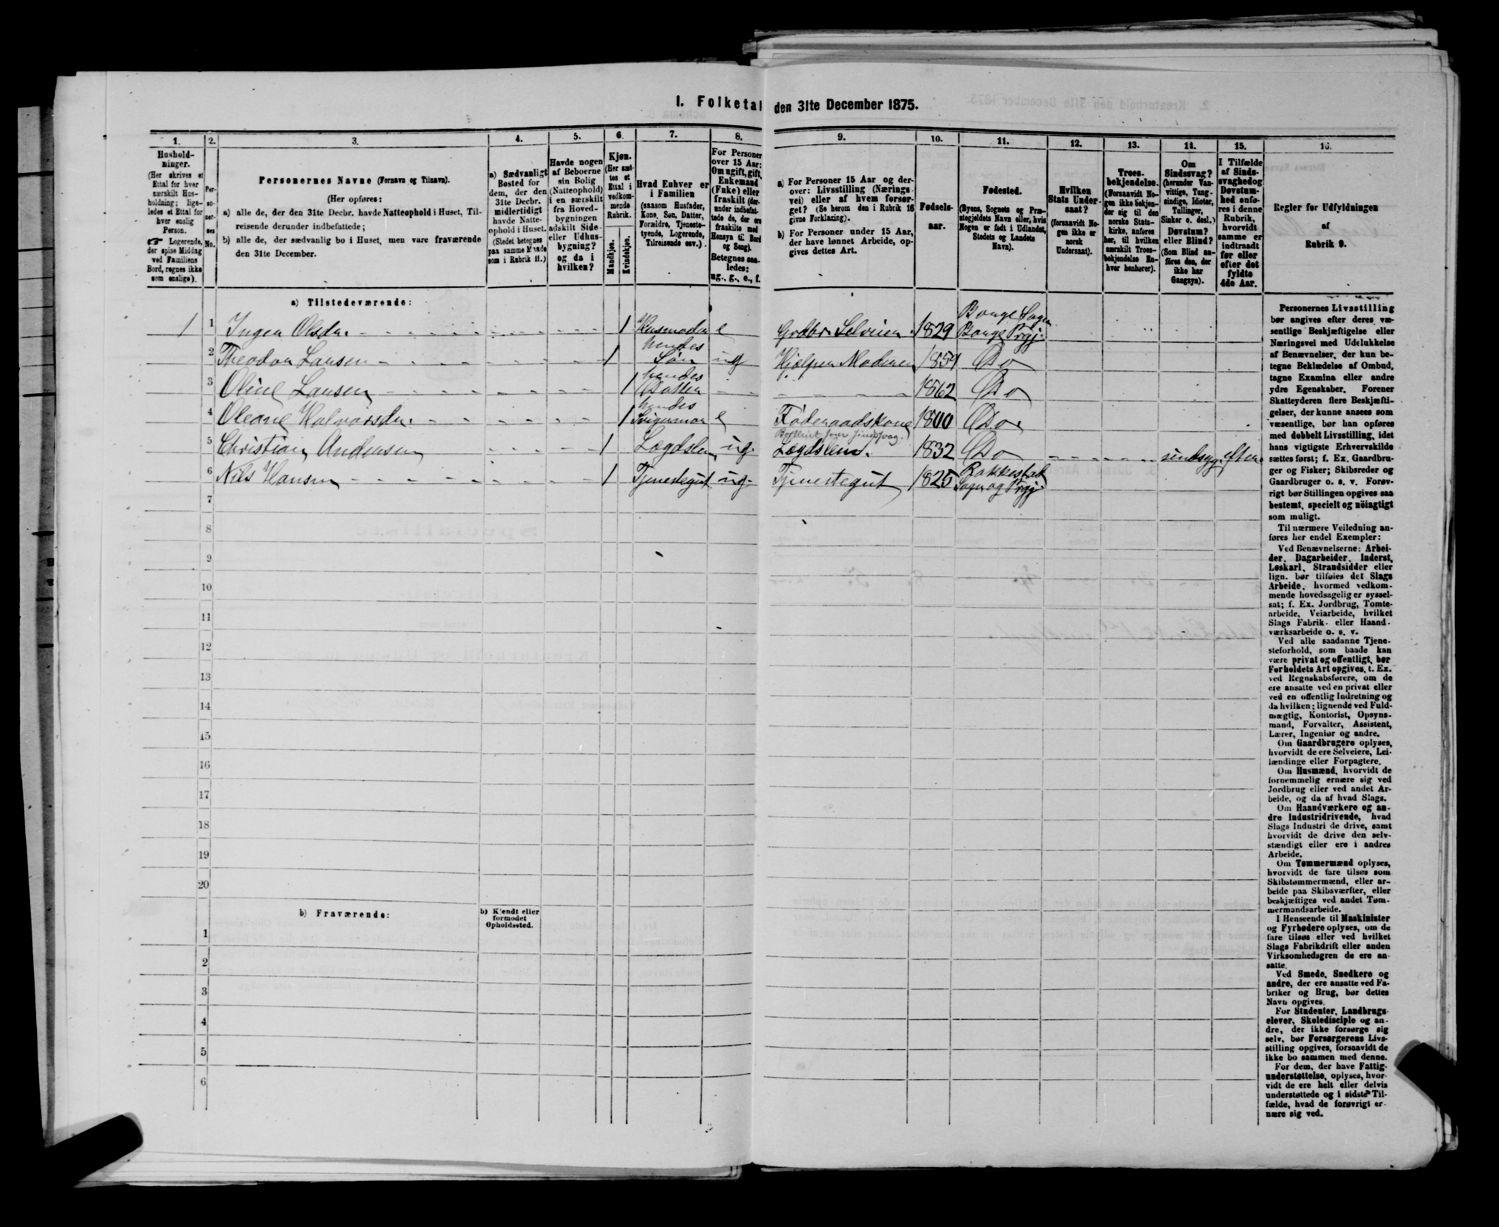 I. Folketal den 31te December 1875.
1. 2. 3. 4. 5. 6. 7. 8. 9. 10. 11. 12. 13. 14. 15. 16.
Hushold-
ninger.
(Her skrives et
Ettal for hver
særskilt Hus-
holdning; lige-
ledes et Ettal for
hver enslig
Person.
☞ Logerende,
der spise Middag
ved Familiens
Bord, regnes ikke
som enslige).
Per-
so-
ner-
nes
No.
Personernes Navne (Fornavn og Tilnavn).
(Her opføres:
a) alle de, der den 31te Decbr. havde Natteophold i Huset, Til-
reisende derunder indbefattede;
b) alle de, der sædvanlig bo i Huset, men vare fraværende
den 31te December.
a) Sædvanligt
Bosted for
dem, der den
31te Decbr.
midlertidigt
havde Natte-
ophold i Huset.
(Stedet betegnes
paa samme Maade
som i Rubrik 11.)
Havde nogen
af Beboerne
sin Bolig
(Natteophold)
i en særskilt
fra Hoved-
bygningen
adskilt Side-
eller Udhus-
bygning?
og da i
hvilken?
Kjøn.
(Her sæt-
tes et
Ettal i
vedkom-
mende
Rubrik.
Mandkjøn.
Kvindekjøn.
Hvad Enhver er
i Familien
(saasom Husfader,
Kone, Søn, Datter,
Forældre, Tjeneste-
tyende, Logerende,
Tilreisende osv.)
For Personer
over 15 Aar;
Om ugift, gift,
Enkemand
(Enke) eller
fraskilt (der-
under indbefat-
tede de, der ere
fraskilte med
Hensyn til Bord
og Seng).
Betegnes saa-
ledes:
ug., g., e., f.
a) For Personer 15 Aar og der-
over: Livsstilling (Nærings-
vei) eller af hvem forsør-
get? (Se herom den i Rubrik 16
givne Forklaring).
b) For Personer under 15 Aar,
der have lønnet Arbeide, op-
gives dettes Art.
Fødsels-
aar.
Fødested.
(Byens, Sognets og Præ-
stegjeldets Navn eller, hvis
Nogen er født i Udlandet,
Stedets og Landets
Navn).
Hvilken
Stats Under-
saat?
(forsaavidt No-
gen ikke er
norsk
Undersaat).
Troes-
bekjendelse.
(Forsaavidt No-
gen ikke bekjen-
der sig til den
norske Stats-
kirke, anføres
her, til hvilken
særskilt Troes-
bekjendelse En-
hver henhører).
Om
Sindssvag?
(herunder Van-
vittige, Tung-
sindige, Idioter,
Tullinger,
Sinker o. desl.)
Døvstum?
eller Blind?
(Som Blind an-
føres den, der
ikke har
Gangsyn).
I Tilfælde
af Sinds-
svaghed og
Døvstum-
hed anfø-
res i denne
Rubrik,
hvorvidt
samme er
indtraadt
før eller
efter det
fyldte
4de Aar.
Regler for Udfyldningen
af
Rubrik 9.
a) Tilstedeværende:
1 1 Ingea Olsdr. 1 Husmoder e Grdbr. Selveier. 1829 Bonge Sogn Bonge Prgj.
2 Theodor Larsen 1 hendes Søn ug Hjælper Moderen 1859 Do
3 Oline Larsen 1 hendes Datter 1862 Do
4 Oleane Halvorsdr. 1 hendes Svigermor e Føderaadskone 1800 Do
5 Christian Andersen 1 Lægdslem ug. Lægdslem. 1832 Do sindsyg. efter
6 Nils Hansen 1 Tjenestegut ug. Tjenestegut 1825 Sogn og Prgj
7
8
9
10
11
12
13
14
15
16
17
18
19
20
b) Fraværende:
b) Kjendt eller
formodet
Opholdssted.
1
2
3
4
5
6
Personernes Livsstilling
bør angives efter deres væ-
sentlige Beskjæftigelse eller
Næringsvei med Udelukkelse
af Benævnelser, der kun be-
tegne Beklædelse af Ombud,
tagne Examina eller andre
ydre Egenskaber. Forener
Skatteyderen flere Beskjæfti-
gelser, der kunne ansees som
væsentlige, bør han opføres
med dobbelt Livsstilling, idet
hans vigtigste Erhvervskilde
sættes først; f. Ex. Gaardbru-
ger og Fisker; Skibsreder og
Gaardbruger o. s. v. Forøv-
rigt bør Stillingen opgives saa
bestemt, specielt og nøiagtigt
som muligt.
Til nærmere Veiledning an-
føres her endel Exempler:
Ved Benævnelserne: Arbei-
der, Dagarbeider, Inderst,
Løskarl, Strandsidder eller
lign. bør tilføies det Slags
Arbeide, hvormed vedkom-
mende hovedsagelig er syssel-
sat; f. Ex. Jordbrug, Tomte-
arbeide, Veiarbeide, hvilket
Slags Fabrik- eller Haand-
værksarbeide o. s. v.
Ved alle saadanne Tjene-
steforhold, som baade kan
være privat og offentligt, bør
Forholdets Art opgives, t. Ex.
ved Regnskabsførere, om de
ere ansatte ved en privat eller
ved en offentlig Indretning og
da hvilken; lignende ved Fuld-
mægtig, Kontorist, Opsyns-
mand, Forvalter, Assistent,
Lærer, Ingeniør og andre.
Om Gaardbrugere oplyses,
hvorvidt de ere Selveiere, Lei-
lændinge eller Forpagtere.
Om Husmænd, hvorvidt de
fornemmelig ernære sig ved
Jordbrug eller ved andet Ar-
beide, og da af hvad Slags.
Om Haandværkere og an-
dre Industridrivende, hvad
Slags Industri de drive, samt
hvorvidt de drive den selv-
stændigt eller ere i andres
Arbeide.
Om Tømmermænd oplyses,
hvorvidt de fare tilsøs som
Skibstømmermænd, eller ar-
beide paa Skibsværfter, eller
beskjæftiges ved andet Tøm-
mermandsarbeide.
I Henseende til Maskinister
og Fyrbødere oplyses, om de
fare tilsøs eller ved hvilket
Slags Fabrikdrift eller anden
Virksomhedsgren de ere an-
satte.
Ved Smede, Snedkere og
andre, der ere ansatte ved Fa-
briker og Brug, bør dettes
Navn opgives.
For Studenter, Landbrugs-
elever, Skoledisciple og an-
dre, der ikke forsørge sig
selv, bør Forsørgerens Livs-
stilling opgives, forsaavidt de
ikke bo sammen med denne.
For dem, der have Fattig-
understøttelse, oplyses, hvor-
vidt de ere helt eller delvis
understøttede og i sidste Til-
fælde, hvad de forøvrigt er-
nære sig ved.